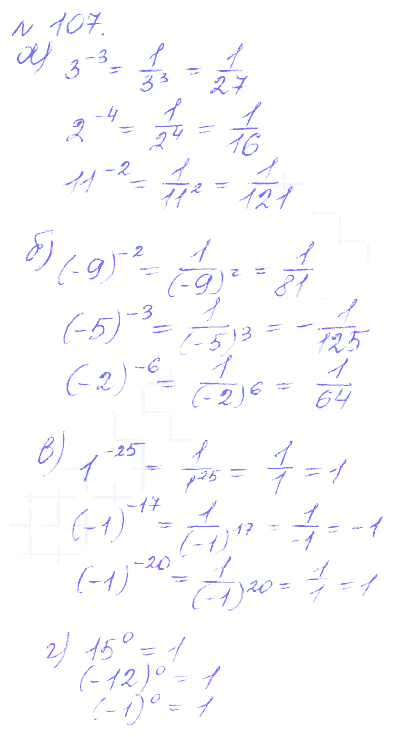 № 107.
а) 3^-3 = 1/3^3 = 1/27
2^-4 = 1/2^4 = 1/16
11^-2 = 1/11^2 = 1/121
б) (-9)^-2 = 1/(-9)^2 = 1/81
(-5)^-3 = 1/(-5)^3 = -1/125
(-2)^-6 = 1/(-2)^6 = 1/64
в) 1^-25 = 1/1^25 = 1/1 = 1
(-1)^-17 = 1/(-1)^17 = 1/-1 = -1
(-1)^-20 = 1/(-1)^20 = 1/1 = 1
г) 15^0 = 1
(-12)^0 = 1
(-1)^0 = 1